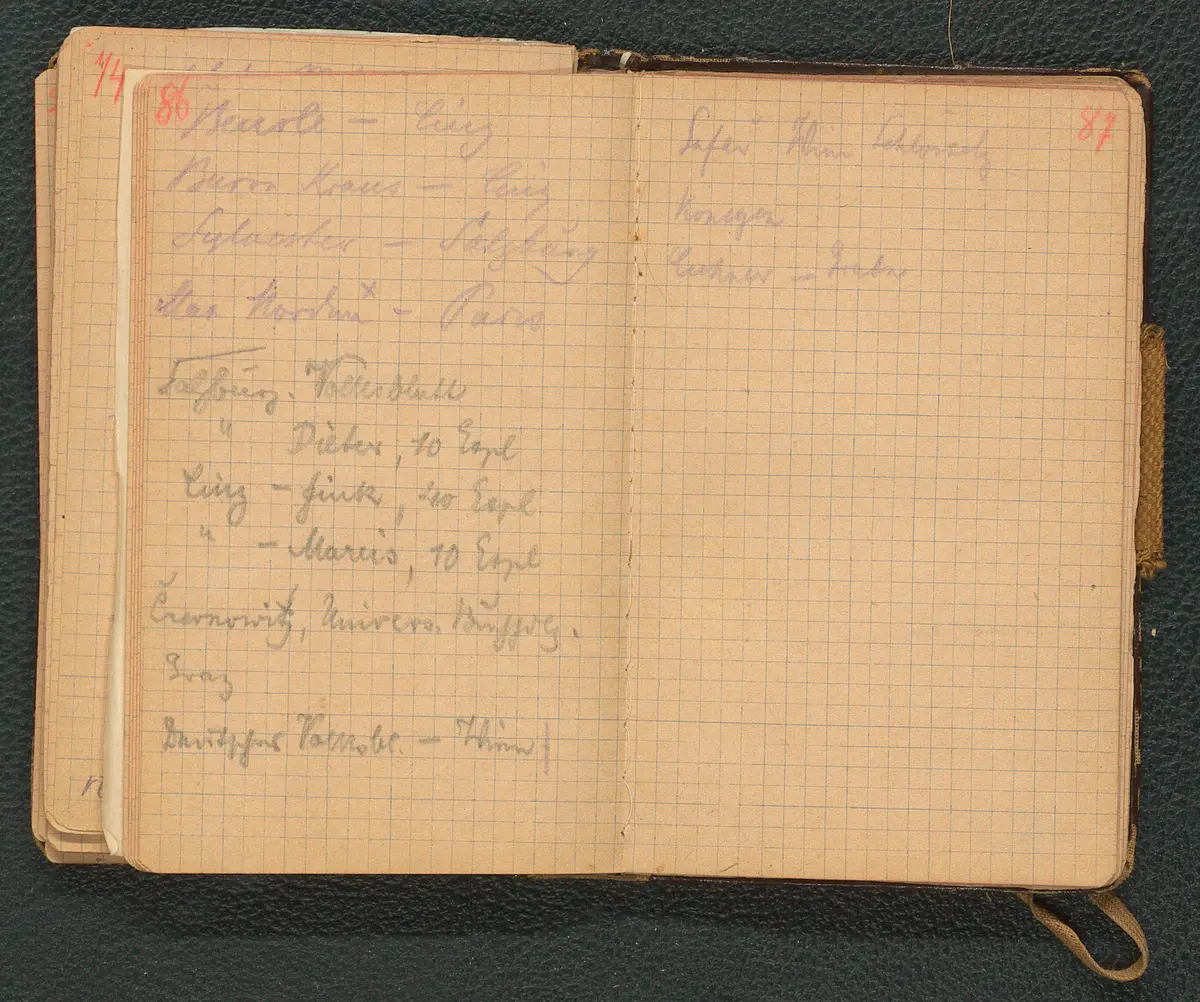 74
86
Beurle – Linz
Baron Kraus – Linz
Sylvester – Salzburg
Max Nordau x – Paris
Salzburg. Volksblatt
" Dieter, 10 Expl
Linz – Fink, 10 Expl
" – Mareis, 10 Expl
Czernowitz, Univers. Buchhdlg.
Graz
Deutsches Volksbl. – Wien
87
Wien
Konegen
Lechner – Graben